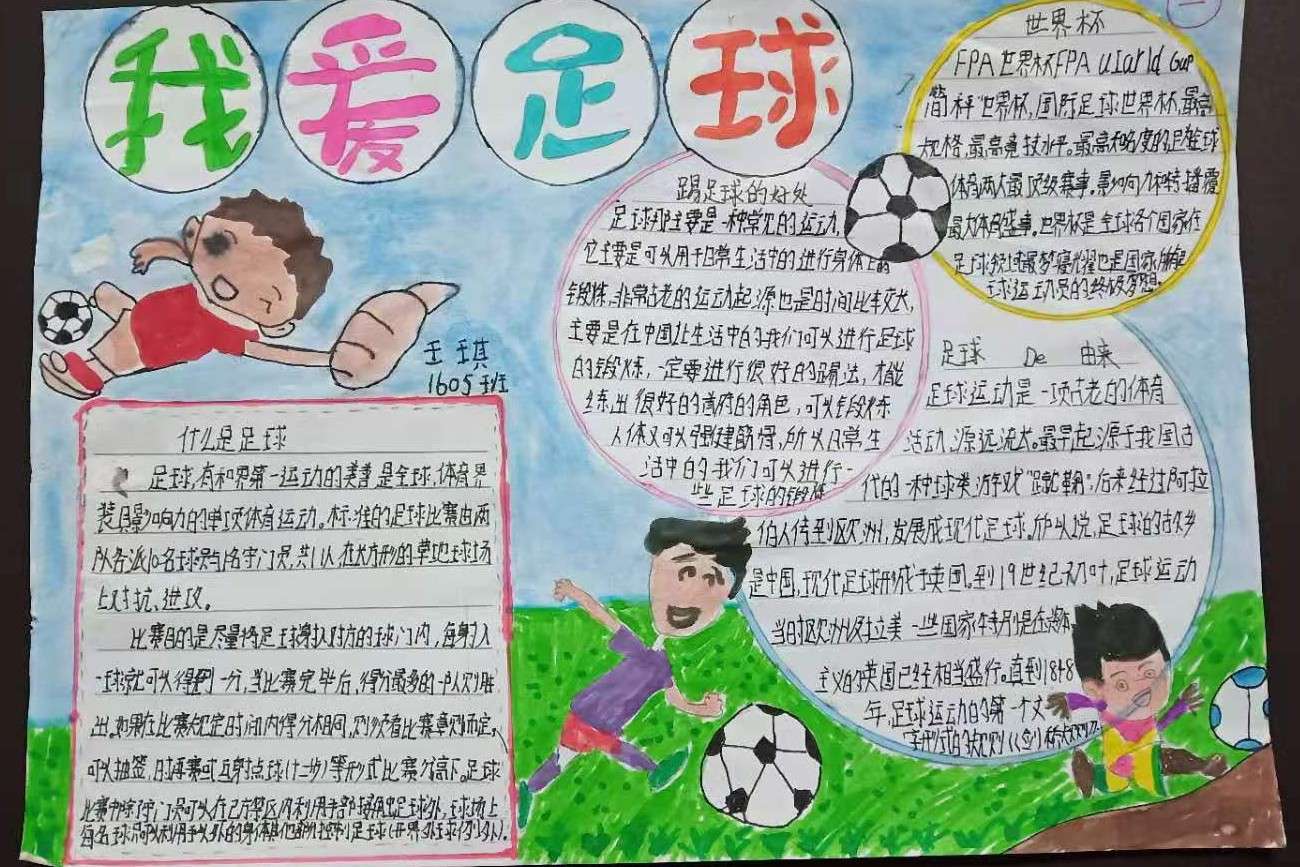 我爱足球
王琪
1605班
什么是足球
足球,有和界第一运动的美善是全球,体育界
影响力的单项体育运动。标准的足球比赛由两
队各派10名球员与1名守门员,共11人,在长方形的草地球场
上对抗、进攻。
比赛目的是尽量将足球射入对方的球门内,每射入
一球就可以得到一分,当比赛完毕后,得分最多的一队则胜
出。如果在比赛规定时间内得分相同,则须看比赛章则而定。
可以抽签,加时再赛或互射点球(十二步)等形式比赛分高下。足球
比赛中除了守门员可以在己方禁区内利用手部接触足球外,球场上
每名球员可以利用手以外的身体其他部分控制足球(开界外球例外)。
踢足球的好处
足球主要是一种常见的运动,
它主要是可以用于日常生活中的进行身体上的
锻炼,非常古老的运动起源也是时间比较大,
主要是在中国让生活中的我们可以进行足球
的锻炼,一定要进行很好的踢法,才能
练出很好的首府的角色,可以锻炼
人体又可以强建筋骨,所以日常生
活中的我们可以进行一
些足球的锻炼
世界杯
FPA世界杯FPA World Gup
简称"世界杯,国际足球世界杯,最高
规格,最高竞技水平。最高知名度的足球
体育两大最顶级赛事。影响力和转播覆
最大体育盛事。世界杯是全球各个国家在
足球领域最梦寐光耀也是国家
球运动员的终极梦想。
足球 De 由来
足球运动是一项古老的体育
活动,源远流大。最早起源于我国古
代的一种球类游戏"蹴鞠"后来经过阿拉
伯人传到欧洲,发展成现代足球。所以说,足球的故乡
是中国,现代足球形成于英国。到19世纪初叶,足球运动
当时欧洲及拉美一些国家特别是在
主义的英国已经相当盛行。直到1848
年,足球运动的第一个文
字形式的规则